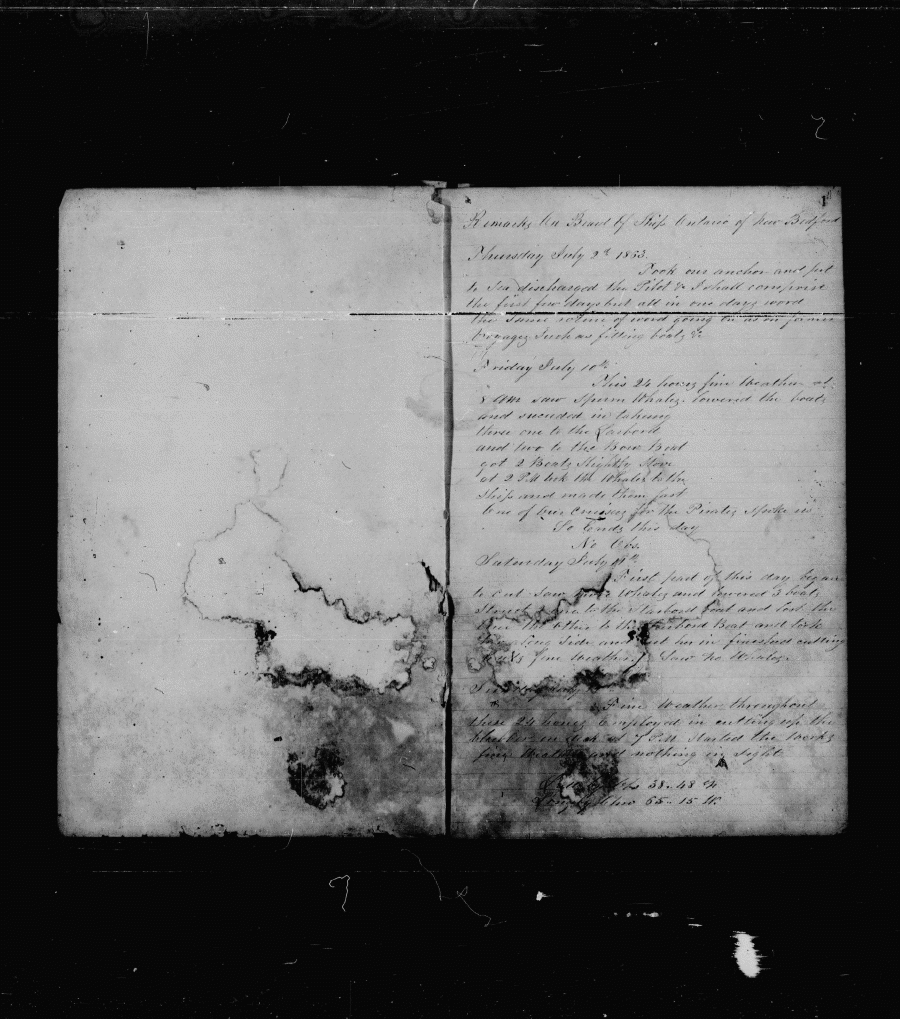 1
Remarks On Board Of Ship Ontario of New Bedford
Thursday July 2d 1863
Took our anchor and put
to Sea discharged the Pilot & I shall comprise
the first few days but all in one days word
the same rotine of word going on as on former
Voyages Such as fitting boats &c
Friday July 10th
This 24 hours fine Weather at
8 AM saw Sperm Whales lowered the boats
and suceeded in taking
three one to the Larboard
and two to the Bow Boat
got 2 Boats Slightly Stove
at 2 PM took the Whales to the
Ship and made them fast
one of our Cruisers for the Pirates Spoke us
So Ends this day
No Obs.
Saturday July 11th
First part of this day began
to cut Saw more Whales and lowered 3 boats
Struck one to the Starboard boat and lost the
the other to the Larboard Boat and took
Side and cut her in finished cutting
fine Weather Saw no Whales
Fine Weather throughout
these 24 hours Employed in cutting up the
at 7 P.M. Started the Works
fine Weather and nothing in Sight
38-48 N
55-15 W